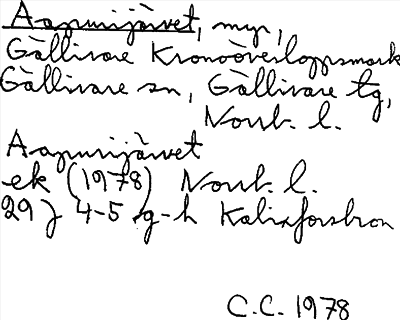 Aapurijärvet, myr,
Gällivare Kronoöverloppsmark
Gällivare sn, Gällivare tg,
Norrb. l.
Aapurijärvet
ek (1978) Norrb. l.
29J 4-5 g-h Kalixforsbron
C.C. 1978